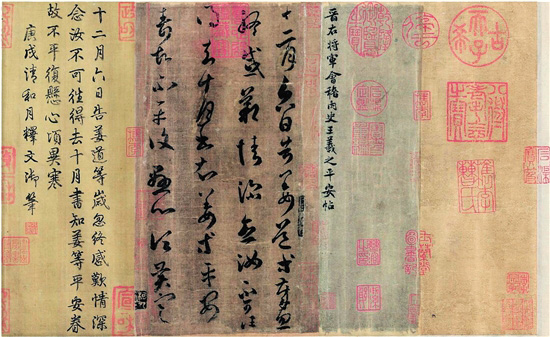 古希天子
八徵耄耋之寶
晉右將軍會稽內史王羲之平安帖
十二月六日告姜道等歲忽
終感歎情深念汝不可往
得去十月書知姜等平安
眷故不平復懸心頃異寒
十二月六日告姜道等歲忽終感歎情深
念汝不可往得去十月書知姜等平安眷
故不平復懸心頃異寒
庚戌清和月釋文御筆